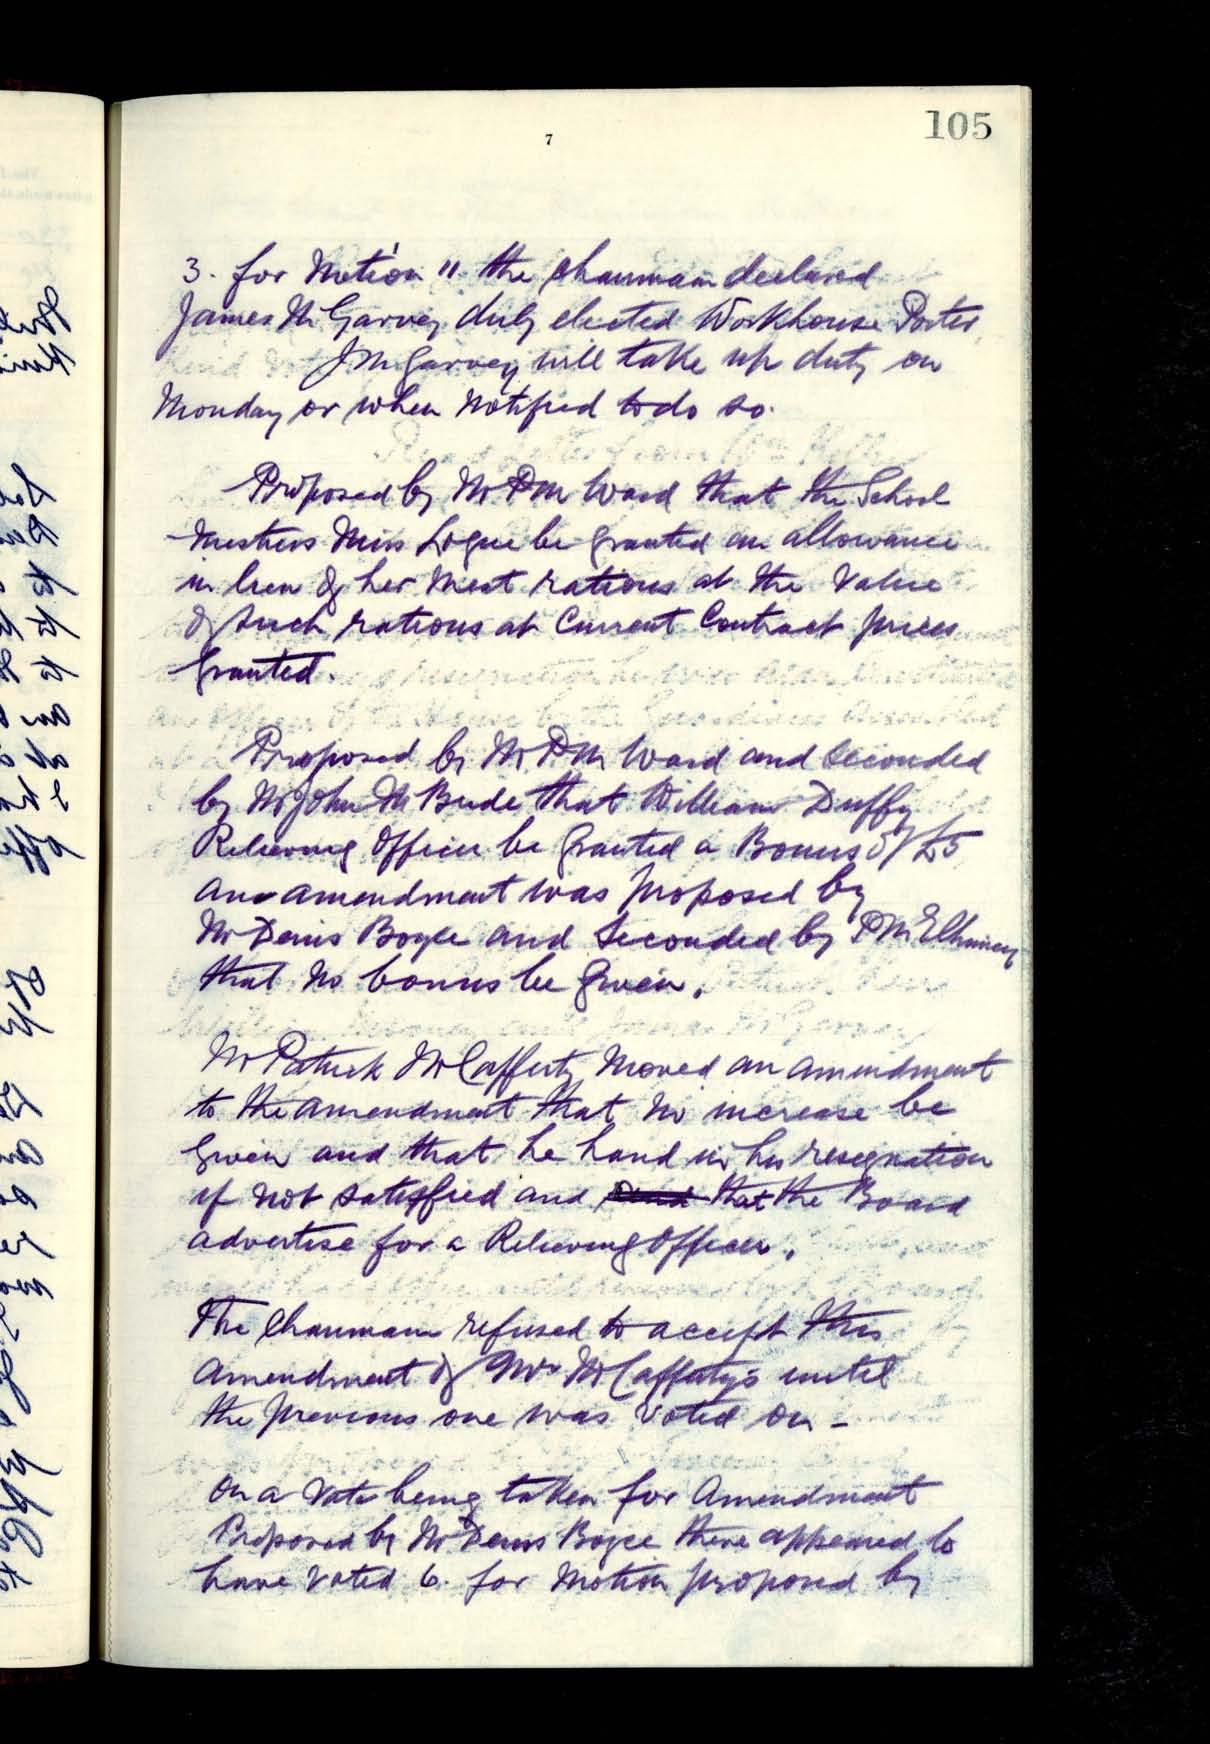 105
7
3. for Motion " the Chairman declared
James McGarvey duly elected Workhouse Porter
J McGarvey will take up duty on
Monday or when notified to do so.
Proposed by Mr P M Ward that the School
Mistress Miss Logue be granted an allowance
in lieu of her Meat rations at the Value
of such rations at Current Contract prices
Granted.
Proposed by Mr P M Ward and Seconded
by Mr John McBride that William Duffy
Relieving Officer be Granted a Bonus of £5
an amendment was proposed by
Mr Denis Boyle and Seconded by P McElhinney
that no bonus be Given.
Mr Patrick McCafferty Moved an amendment
to the amendment that no increase be
Given and that he hand in his resignation
if not satisfied and that the Board
advertise for a Relieving Officer.
The Chairman refused to accept this
amendment of Mr McCafferty's until
the previous one was Voted on -
On a Vote being taken for Amendment
Proposed by Mr Denis Boyle there appeared to
have Voted 6. for Motion proposed by